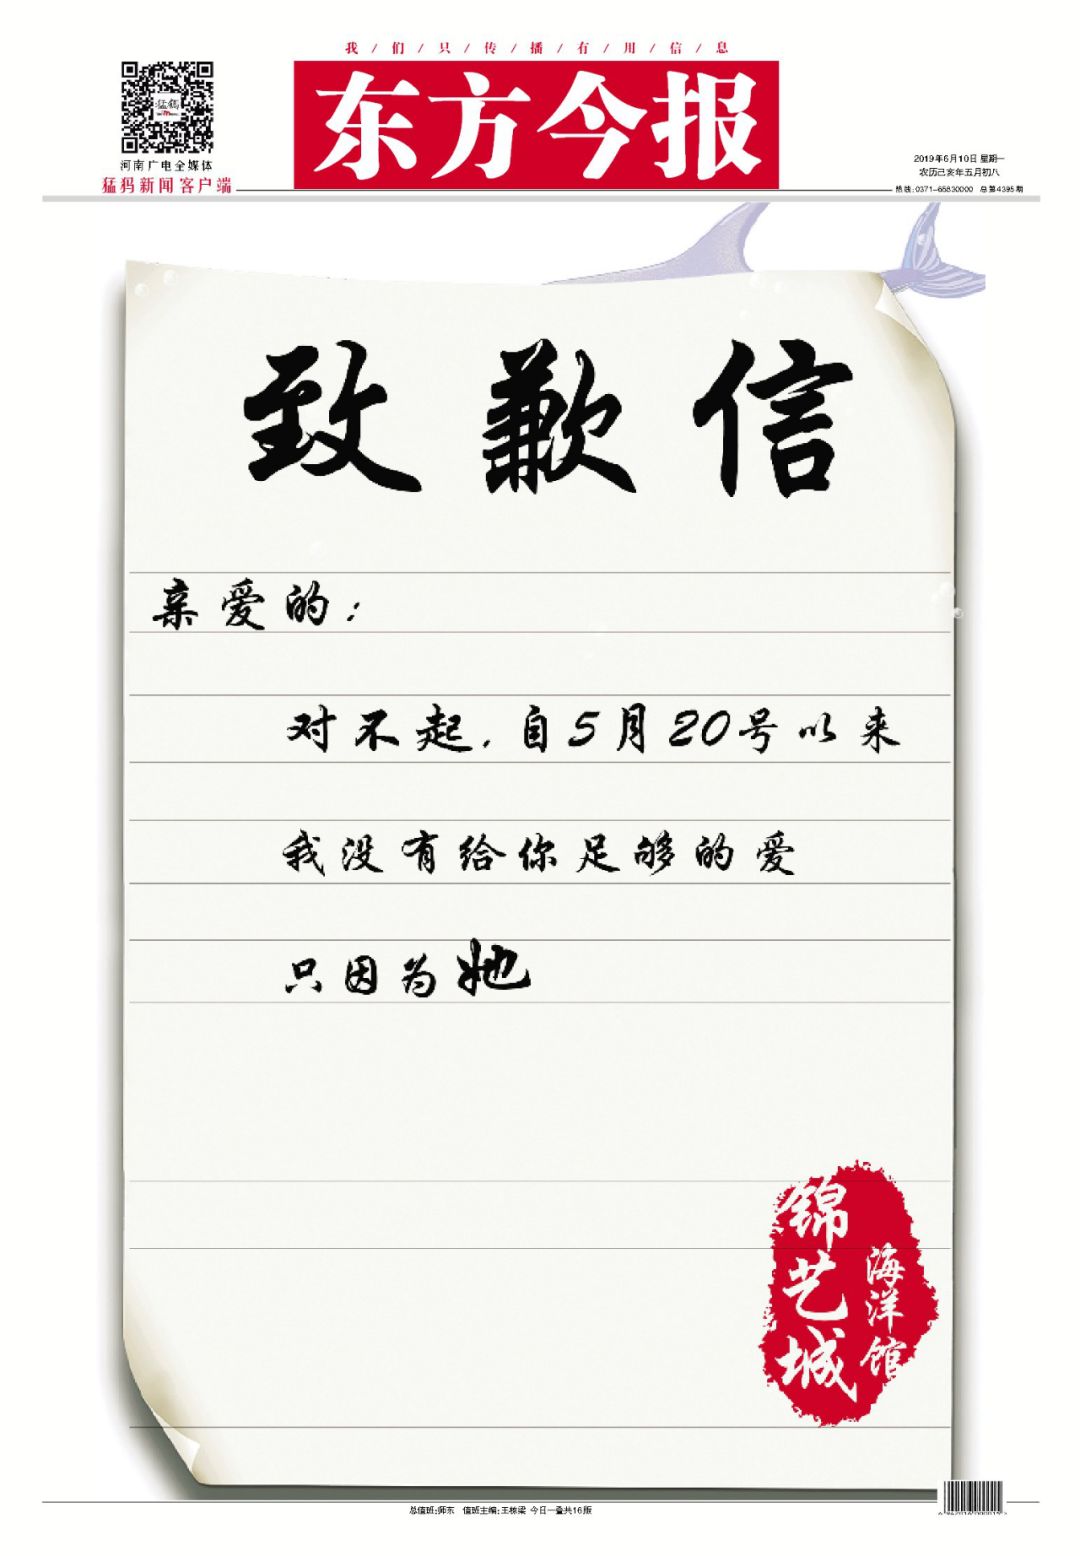 我/们/只/传/播/有/用/信/息
东方今报
河南广电全媒体
猛犸新闻客户端
2019年6月10日 星期一
农历己亥年五月初八
热线:0371-65830000 总第4395期
致歉信
亲爱的:
对不起,自5月20号以来
我没有给你足够的爱
只因为她
锦艺城
海洋馆
总值班:师东 值班主编:王栋梁 今日一叠共16版